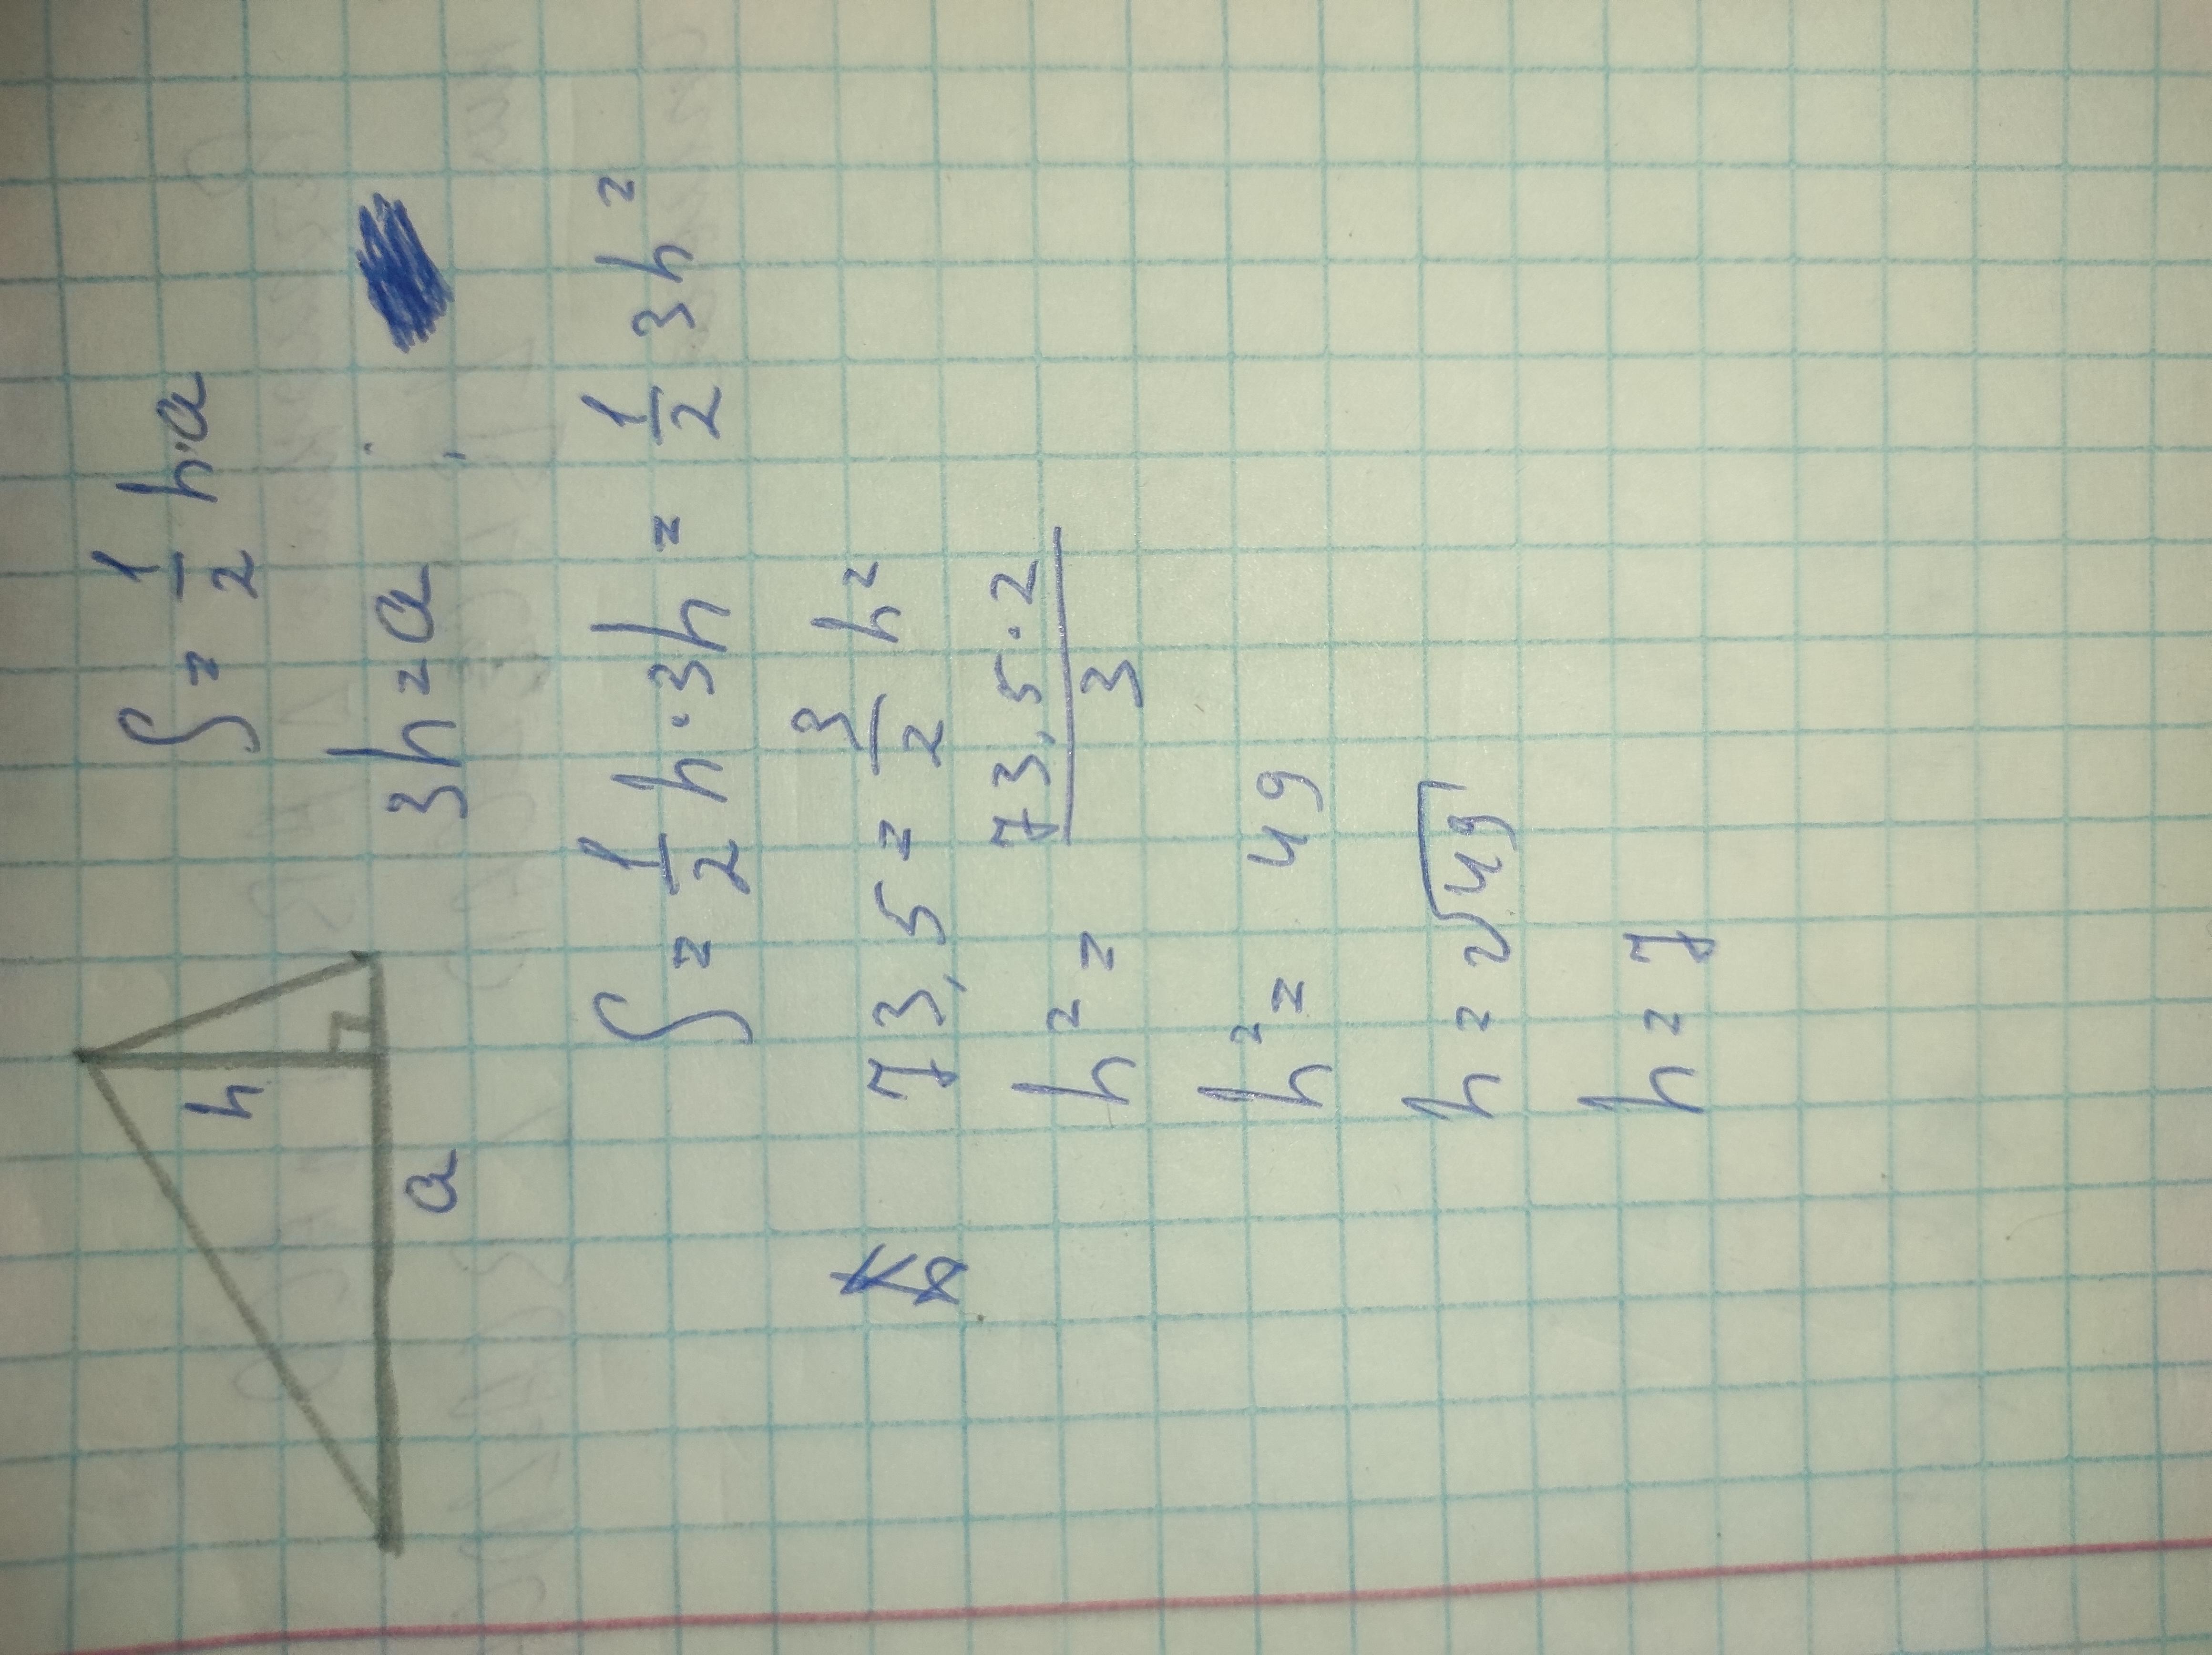 h
a
S = 1/2 h·a
3h = a
S = 1/2 h · 3h = 1/2 3h²
73,5 = 3/2 h²
h² = 73,5 · 2 / 3
h² = 49
h = √49
h = 7